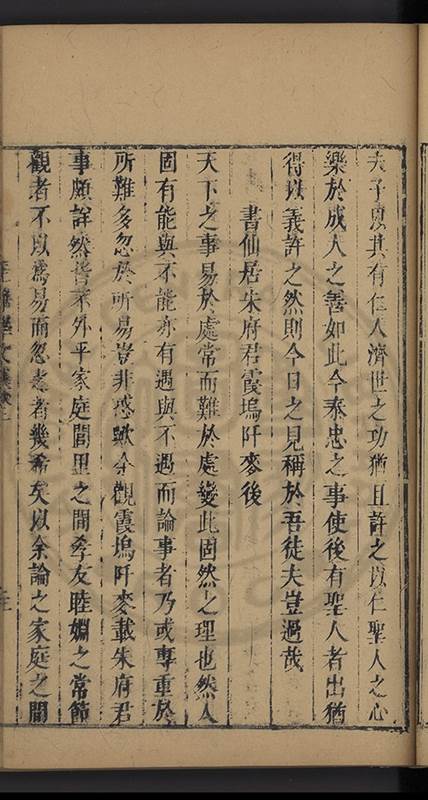 夫子慶其有仁人濟世之功猶且許之以仁聖人之心
樂於成人之善如此今奉忠之事使後有聖人者出猶
得以義許之然則今日之見稱於吾徒夫豈過哉
書仙居朱府君霞塢阡麥後
天下之事易於處常而難於處變此固然之理也然人
固有能與不能亦有遇與不遇而論事者乃或專重於
所難多忽於所易豈非惑歟余觀霞塢阡麥載朱府君
事頗詳然皆不外乎家庭閭里之間孝友睦婣之常節
觀者不以爲易而忽之者幾希矣以余論之家庭之間